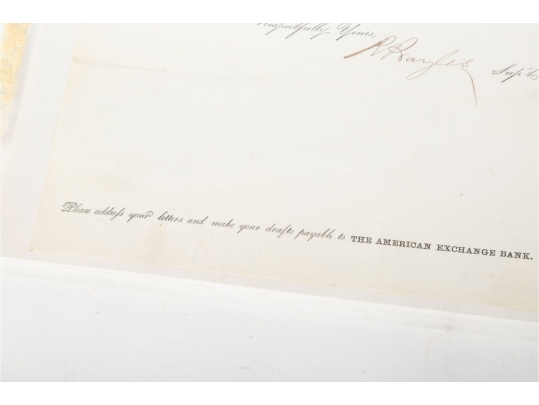 Respectfully Yours,
Sup't
Please addreſs your letters and make your drafts payable to THE AMERICAN EXCHANGE BANK.